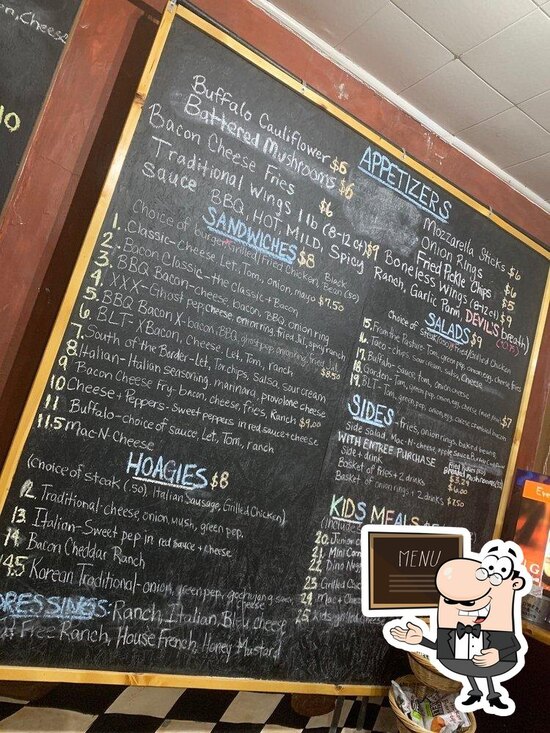 on, Cheese
10
APPETIZERS
Buffalo Cauliflower $6
Battered Mushrooms $6
Bacon Cheese Fries $6
Traditional Wings 1 lb (8-12 ct) $9
Mozzarella Sticks $6
Onion Rings $6
Fried Pickle Chips $5
Boneless Wings (8-12ct) $9
Sauce BBQ, HOT, MILD, Spicy Ranch, Garlic Parm DEVIL'S breath)
SANDWICHES $8
Choice of burger, Grilled/Fried Chicken, Black Bean (.50)
1. Classic-Cheese, Let, Tom, onion, mayo $7.50
2. Bacon Classic-the Classic + Bacon
3. BBQ Bacon-cheese, bacon, BBQ, onion ring
4. XXX-Ghost pep, cheese, onion ring, fried Jal, spicy ranch
5. BBQ Bacon X-bacon, BBQ, ghost pep, onion ring, fried
6. BLT-XBacon, Cheese, Let, Tom, ranch $8.50
7. South of the Border-Let, Tor chips, Salsa, sour cream
8. Italian-Italian seasoning, marinara, provolone cheese
9 Bacon Cheese Fry-bacon, cheese, fries, Ranch $9.00
10 Cheese + Peppers-Sweet peppers in red sauce + cheese
11 Buffalo-choice of sauce, Let, Tom, ranch
11.5 Mac-N-Cheese
HOAGIES $8
(Choice of steak (.50) Italian Sausage, Grilled Chicken)
12. Traditional-cheese, onion, mush, green pep,
13. Italian-Sweet pep in red sauce + cheese
14 Bacon Cheddar Ranch
14.5 Korean Traditional-onion, green pep, gochujang sauce cheese
DRESSINGS: Ranch, Italian, Bleu cheese
Fat Free Ranch, House French, Honey Mustard
SALADS $9
Choice of steak (.50) Fried/Grilled Chicken
15. From the Pasture-Tom, green pep, onion, egg, cheese, fries
16. Taco-chips, sour cream, salsa, cheese
17. Buffalo-sauce, tom, onion, cheese
18. Garden-Tom, green pep, onion, egg, cheese (meat free) $7
19. BLT-Tom, green pep, onion, egg, cheese, bacon
SIDES-fries, onion rings, baked beans,
Side Salad, Mac-N-cheese, apple sauce,
WITH ENTREE PURCHASE
Side + drink $3.25
Basket of fries + 2 drinks $6.00
Basket of onion rings + 2 drinks $7.50
KIDS MEALS
(Includes
20. Junior
21. Mini Corn
22. Dino Nugg
23. Grilled Chee
24. Mac + Chee
25. Kids grilled chicken
MENU